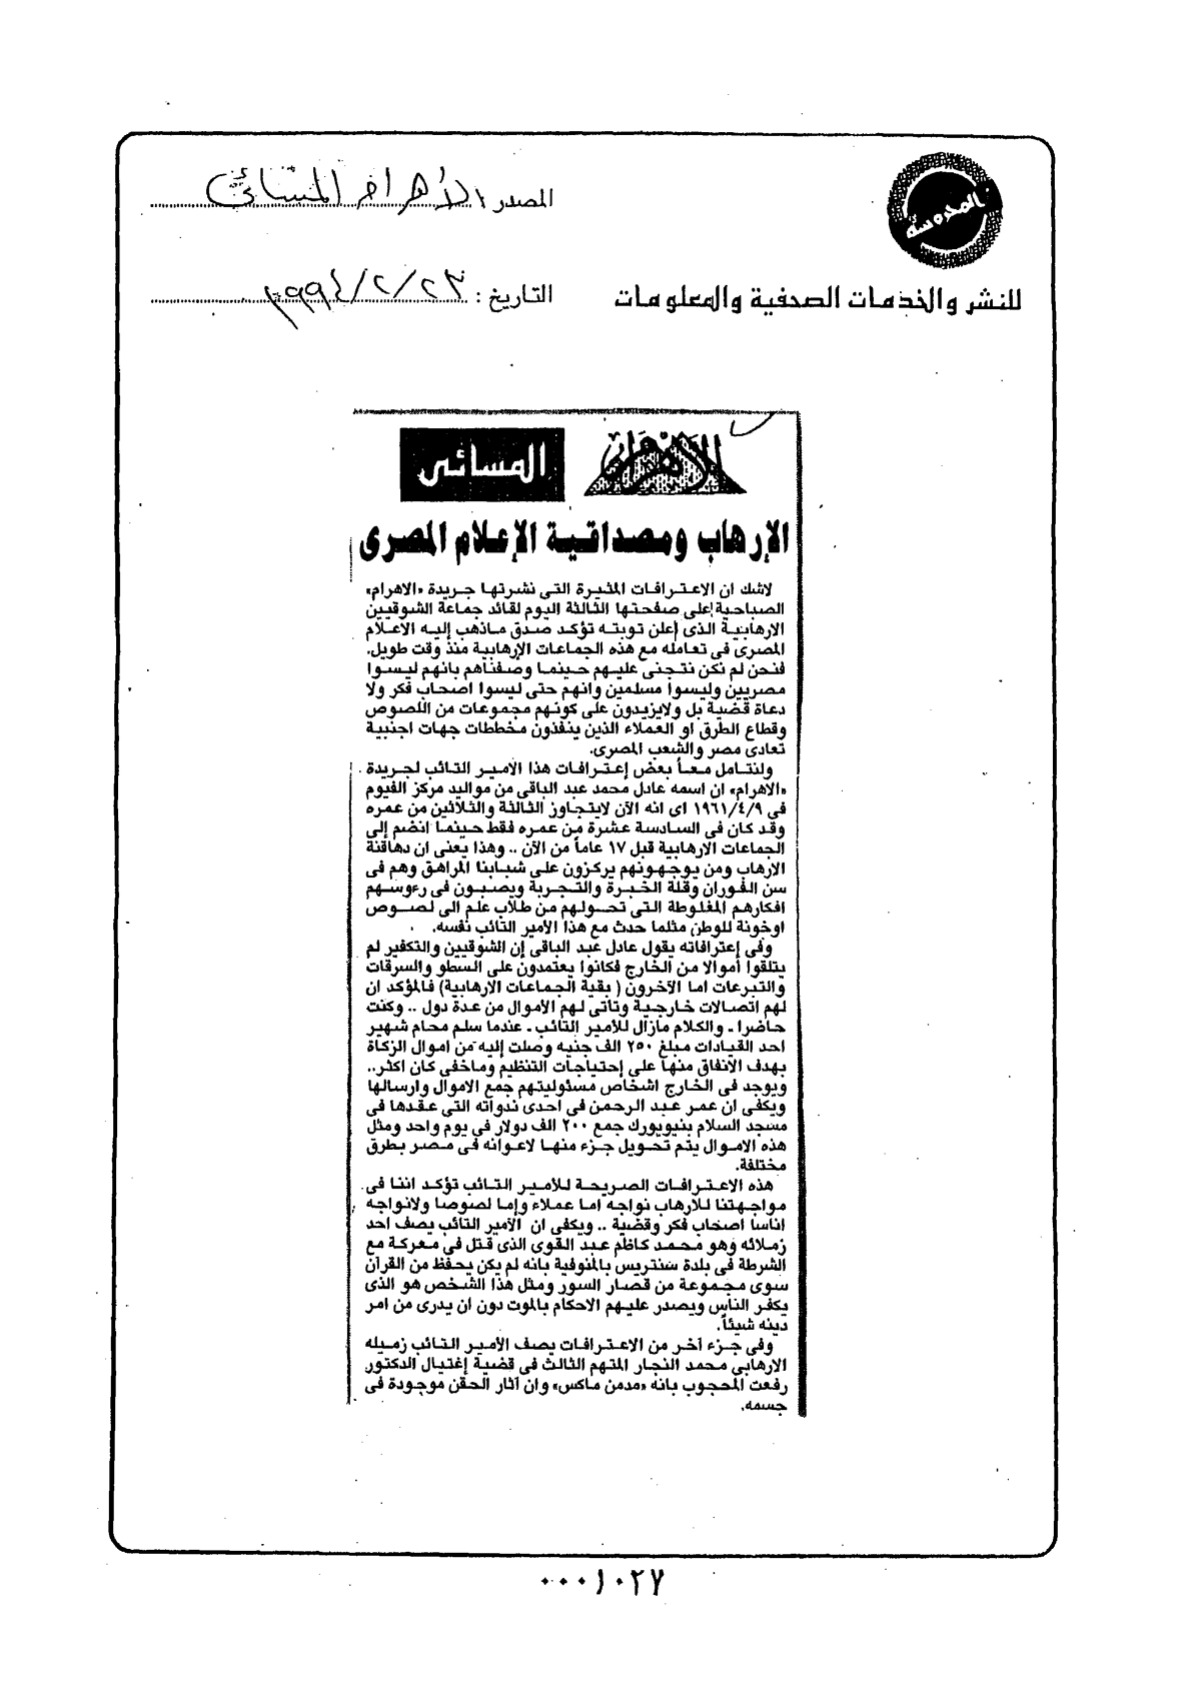 المحروسة
المصدر : الأهرام المسائى
للنشر والخدمات الصحفية والمعلومات
التاريخ : ٢٣/٢/١٩٩٤
الأهرام المسائى
الإرهاب ومصداقية الإعلام المصرى
لاشك ان الاعترافات المثيرة التى نشرتها جريدة «الاهرام»
الصباحية على صفحتها الثالثة اليوم لقائد جماعة الشوقيين
الارهابية الذى إعلن توبته تؤكد صدق ماذهب إليه الاعلام
المصرى فى تعامله مع هذه الجماعات الإرهابية منذ وقت طويل.
فنحن لم نكن نتجنى عليهم حينما وصفناهم بانهم ليسوا
مصريين وليسوا مسلمين وانهم حتى ليسوا اصحاب فكر ولا
دعاة قضية بل ولايزيدون على كونهم مجموعات من اللصوص
وقطاع الطرق او العملاء الذين ينفذون مخططات جهات اجنبية
تعادى مصر والشعب المصرى.
ولنتامل معاً بعض إعترافات هذا الأمير التائب لجريدة
«الاهرام» ان اسمه عادل محمد عبد الباقى من مواليد مركز الفيوم
فى ١٩٦١/٤/٩ اى انه الآن لايتجاوز الثالثة والثلاثين من عمره
وقد كان فى السادسة عشرة من عمره فقط حينما انضم إلى
الجماعات الارهابية قبل ١٧ عاماً من الآن .. وهذا يعنى ان دهاقنة
الارهاب ومن يوجهونهم يركزون على شبابنا المراهق وهم فى
سن الفوران وقلة الخبرة والتجربة ويصبون فى رءوسهم
افكارهم المغلوطة التى تحولهم من طلاب علم الى لصوص
اوخونة للوطن مثلما حدث مع هذا الأمير التائب نفسه.
وفى إعترافاته يقول عادل عبد الباقى إن الشوقيين والتكفير لم
يتلقوا أموالا من الخارج فكانوا يعتمدون على السطو والسرقات
والتبرعات اما الآخرون ( بقية الجماعات الارهابية) فالمؤكد ان
لهم اتصالات خارجية وتأتى لهم الأموال من عدة دول .. وكنت
حاضرا - والكلام مازال للأمير التائب - عندما سلم محام شهير
احد القيادات مبلغ ٢٥٠ الف جنيه وصلت إليه من اموال الزكاة
بهدف الانفاق منها على إحتياجات التنظيم وماخفى كان اكثر..
ويوجد فى الخارج اشخاص مسئوليتهم جمع الاموال وارسالها
ويكفى ان عمر عبد الرحمن فى احدى ندواته التى عقدها فى
مسجد السلام بنيويورك جمع ٢٠٠ الف دولار فى يوم واحد ومثل
هذه الاموال يتم تحويل جزء منها لاعوانه فى مصر بطرق
مختلفة.
هذه الاعترافات الصريحة للأمير التائب تؤكد اننا فى
مواجهتنا للارهاب نواجه اما عملاء وإما لصوصا ولانواجه
اناسا اصحاب فكر وقضية .. ويكفى ان الأمير التائب يصف احد
زملائه وهو محمد كاظم عبد القوى الذى قتل فى معركة مع
الشرطة فى بلدة سنتريس بالمنوفية بانه لم يكن يحفظ من القرآن
سوى مجموعة من قصار السور ومثل هذا الشخص هو الذى
يكفر الناس ويصدر عليهم الاحكام بالموت دون ان يدرى من امر
دينه شيئاً.
وفى جزء آخر من الاعترافات يصف الأمير التائب زميله
الارهابى محمد النجار المتهم الثالث فى قضية إغتيال الدكتور
رفعت المحجوب بانه «مدمن ماكس» وان آثار الحقن موجودة فى
جسمه.
٠٠٠١٠٢٧